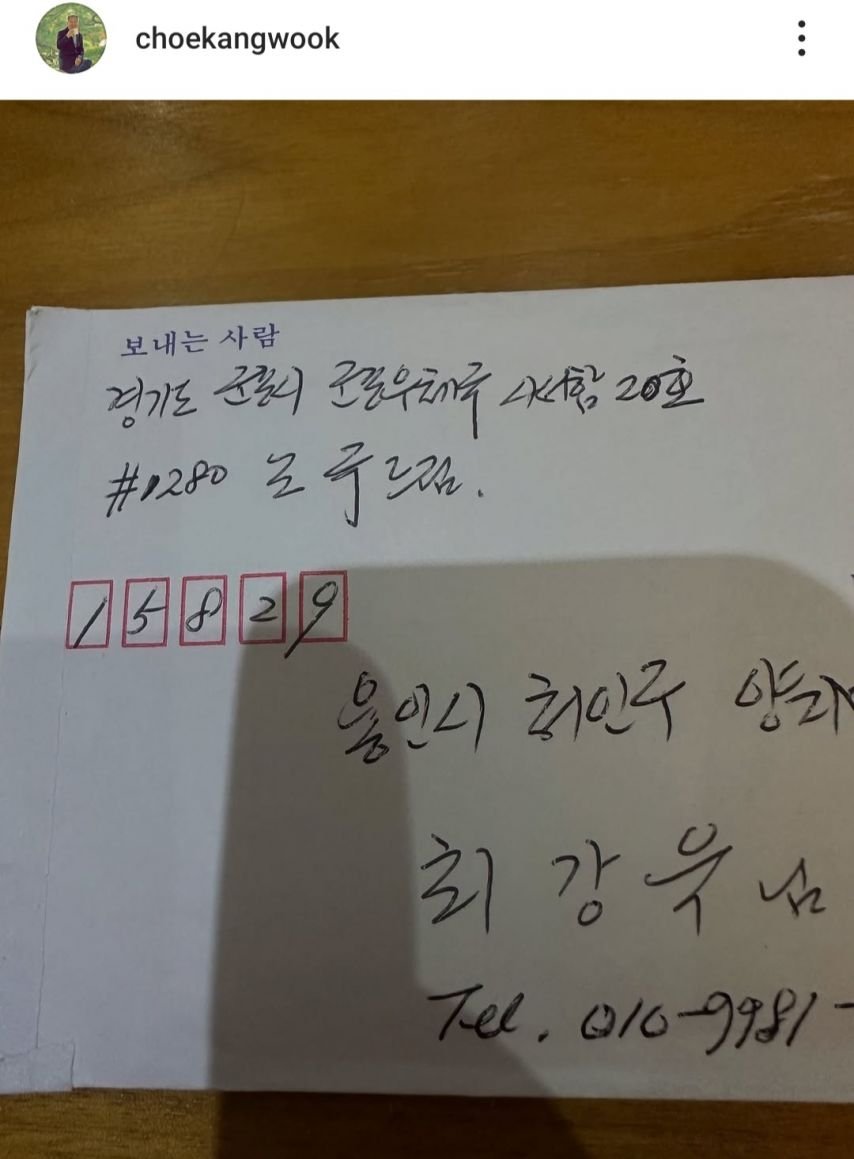 choekangwook
보내는 사람
경기도 군포시 군포우체국 사서함 20호
#1280 조 국 드림.
15829
용인시 처인구 양지
최 강 욱 님
Tel. 010-9981-